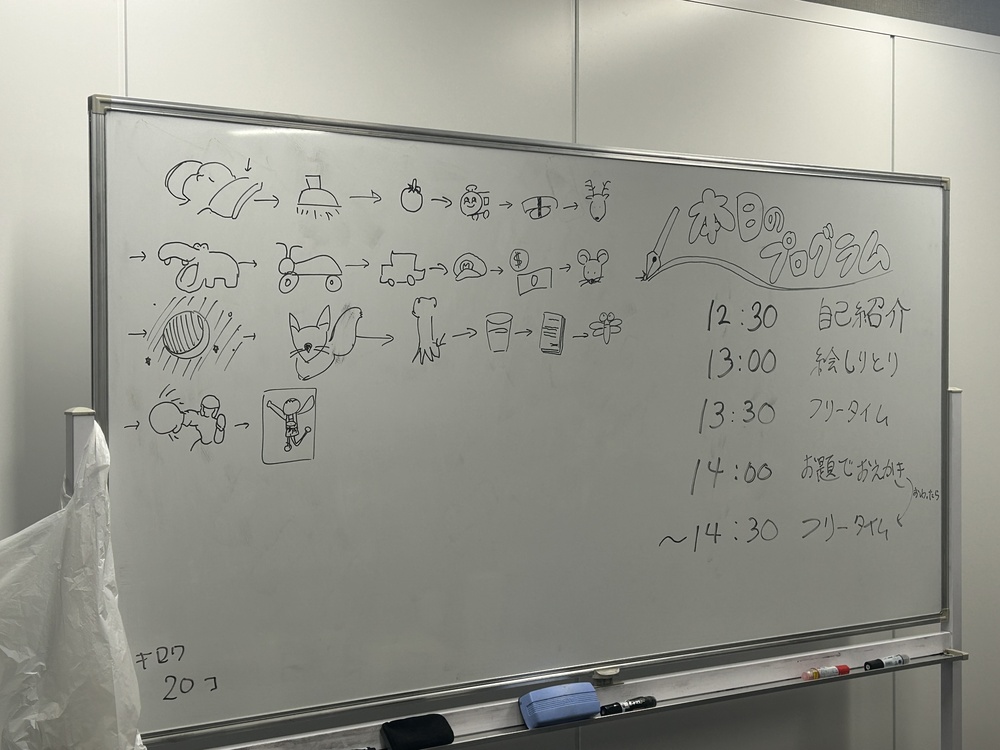 本日の
プログラム
12:30 自己紹介
13:00 絵しりとり
13:30 フリータイム
14:00 お題でおえかき
おわったら
~14:30 フリータイム
M
$
キロク
20コ